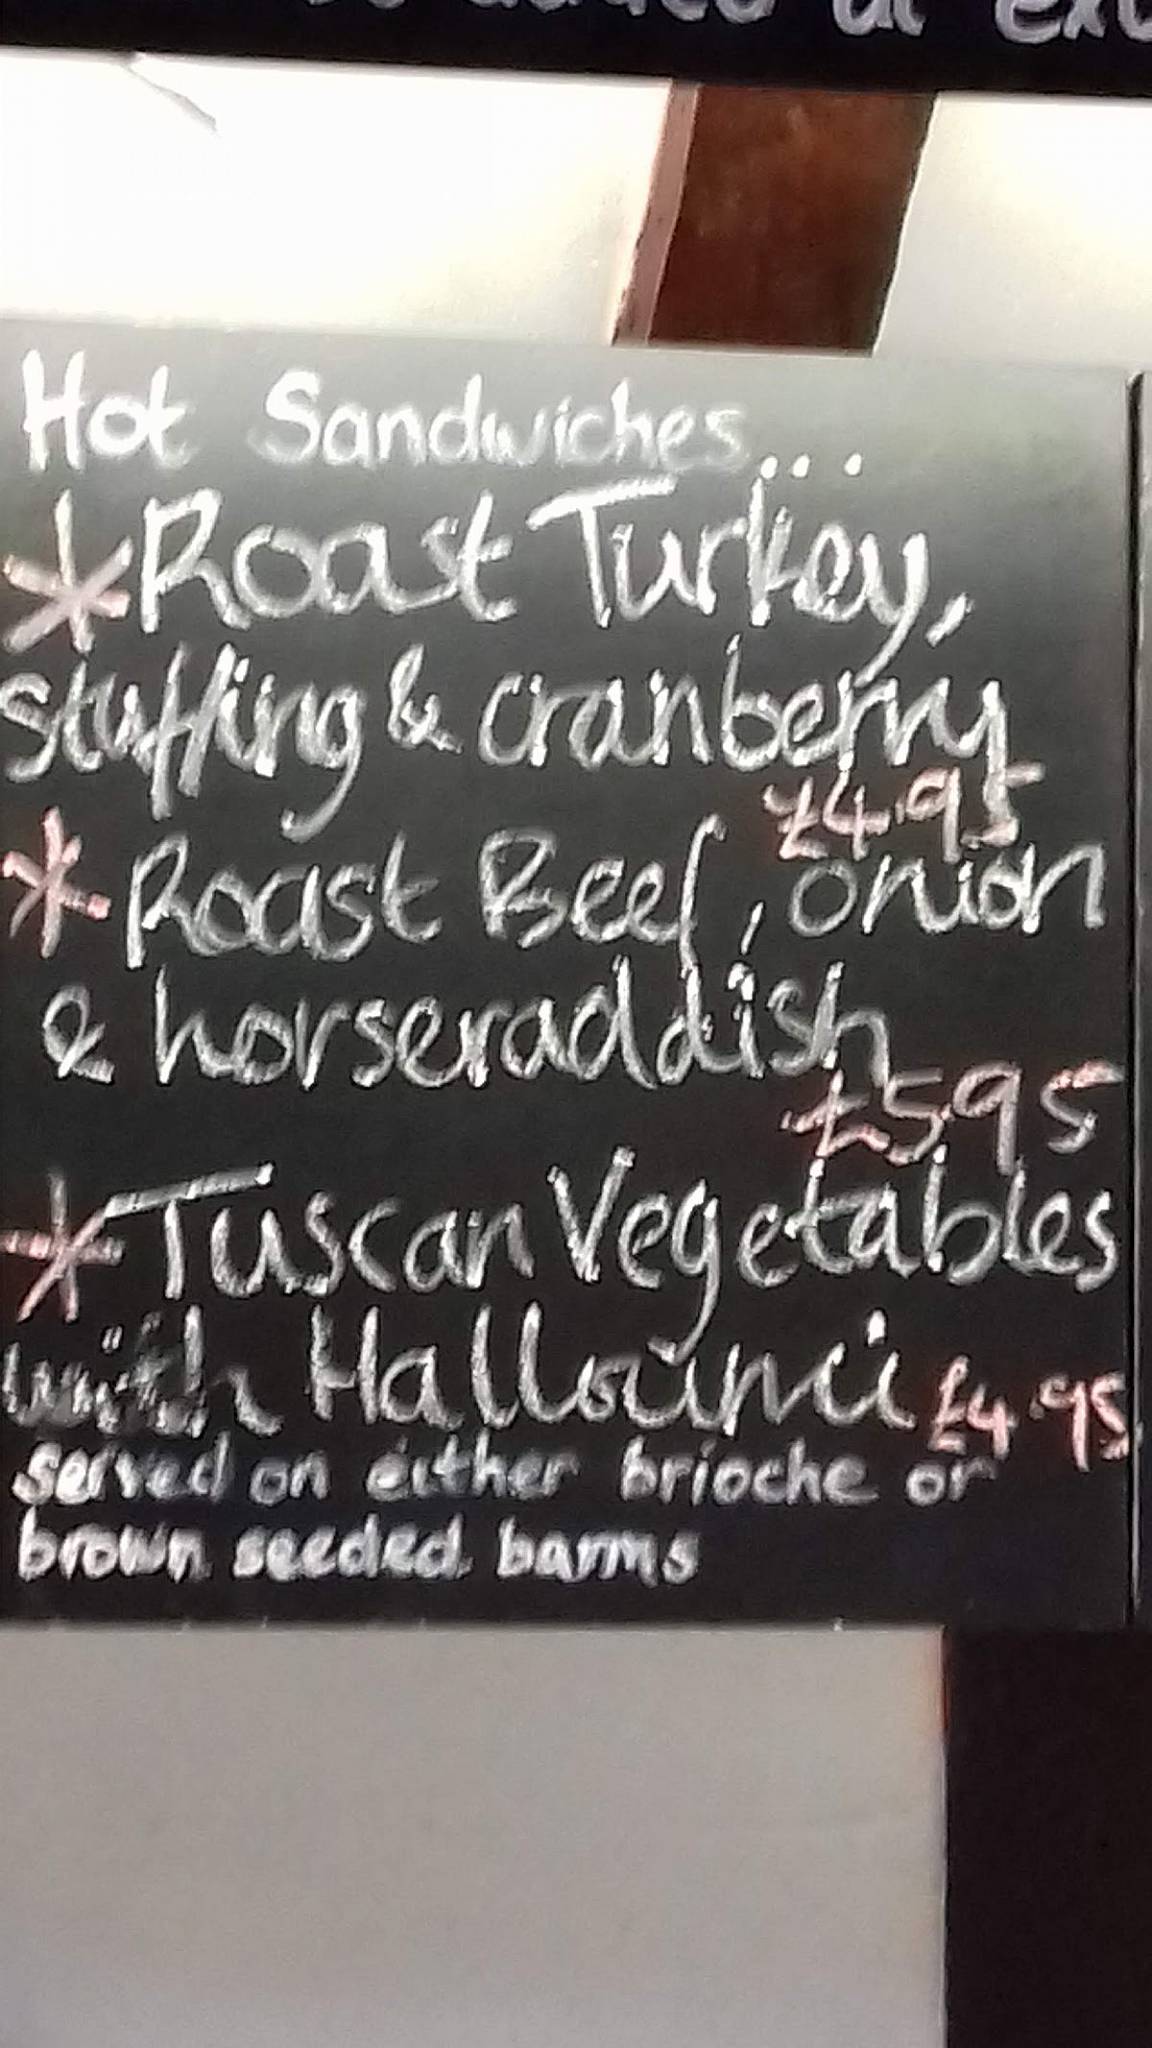 added at
Hot Sandwiches...
*Roast Turkey,
stuffing & cranberry
£4.95
* Roast Beef, onion
& horseraddish
£5.95
*Tuscan Vegetables
with Halloumi £4.95
served on either brioche or
brown seeded barms